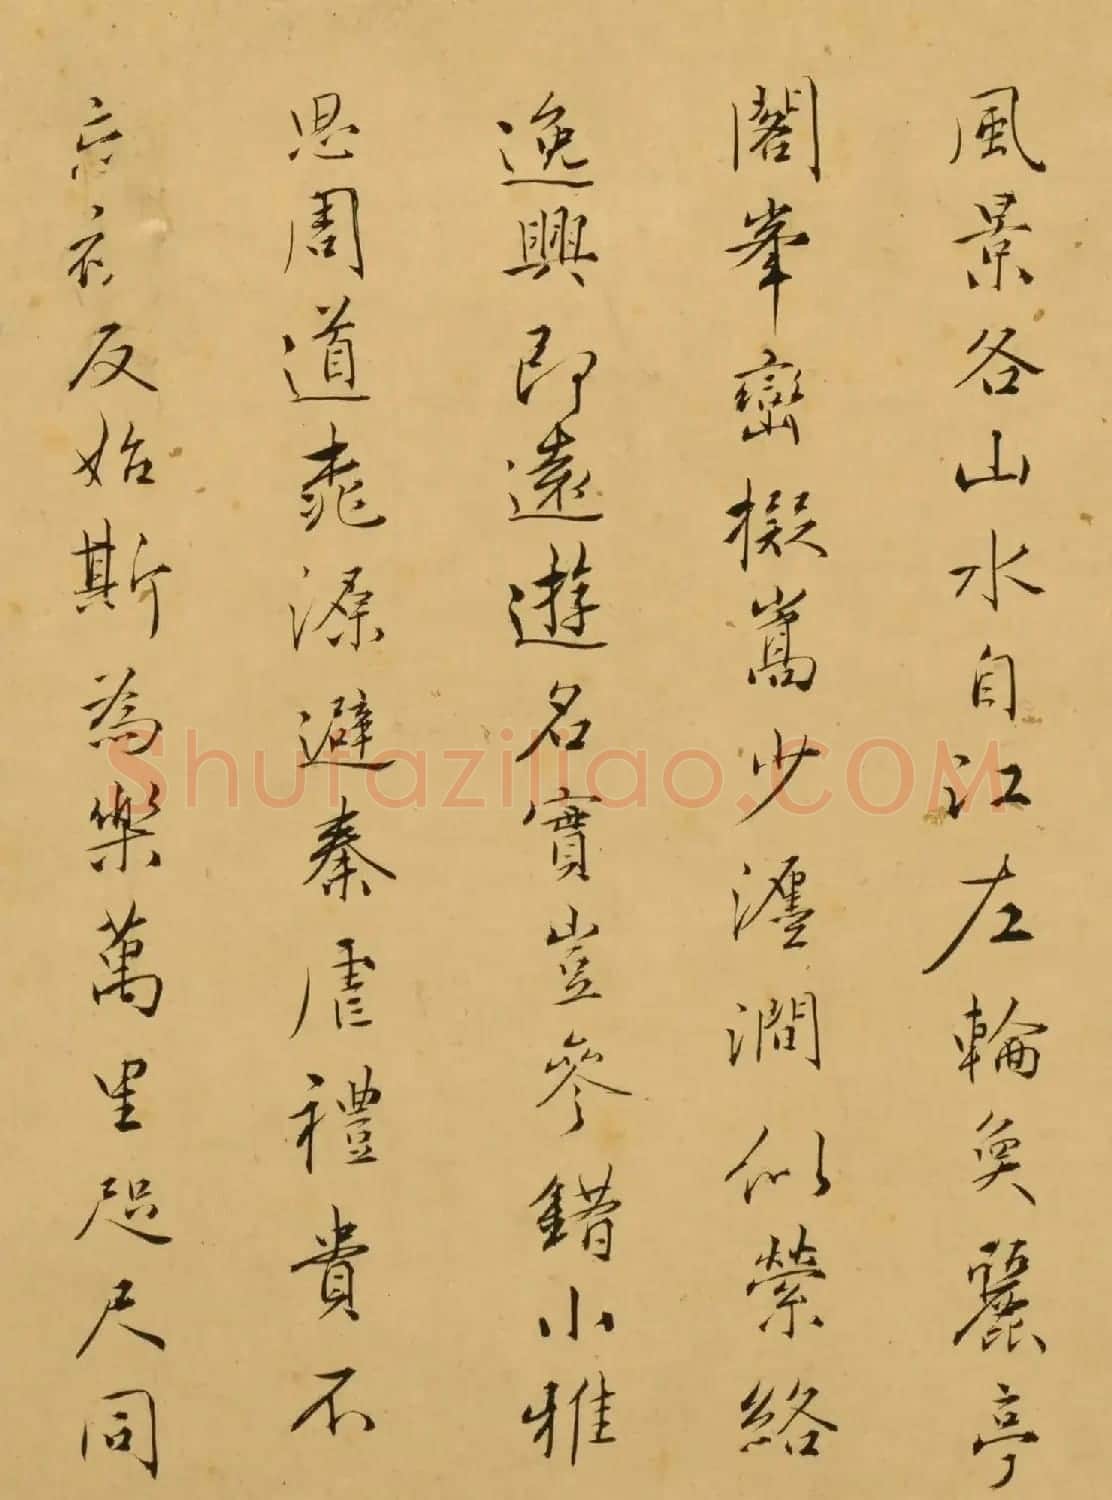 風景各山水自江左輪奐麗亭
閣峯巒擬嵩少瀍澗似縈絡
逸興即遠遊名實豈參錯小雅
思周道桃源避秦虐禮貴不
忘衣反始斯為樂萬里咫尺同
Shufaziliao.COM